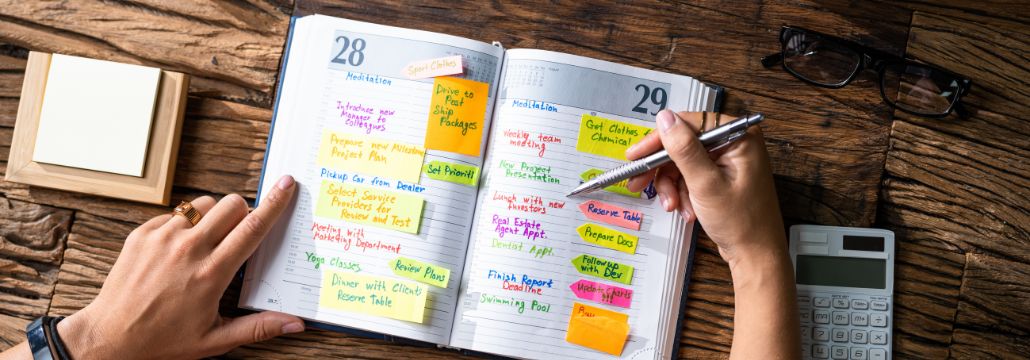 28
Sport Clothes
Meditation
Drive to
Post
Ship
Packages
Introduce new
Manager to
Colleagues
Prepare new Milestone
Project Plan
Set Prioriti
Pickup Car from Dealer
Select Service
Providers for
Review and Test
Meeting with
Marketing Department
Yoga Classes
Review Plans
Dinner with Clients
Reserve Table
29
Meditation
Get Clothes
Chemical
Weekly team
meeting
New Project
Presentation
Lunch with new
Investors
Reserve Table
Real Estate
Agent Appt.
Prepare Docs
Dentist Appt.
Follow up
with Dev
Finish Report
Deadline
Update Charts
Swimming Pool